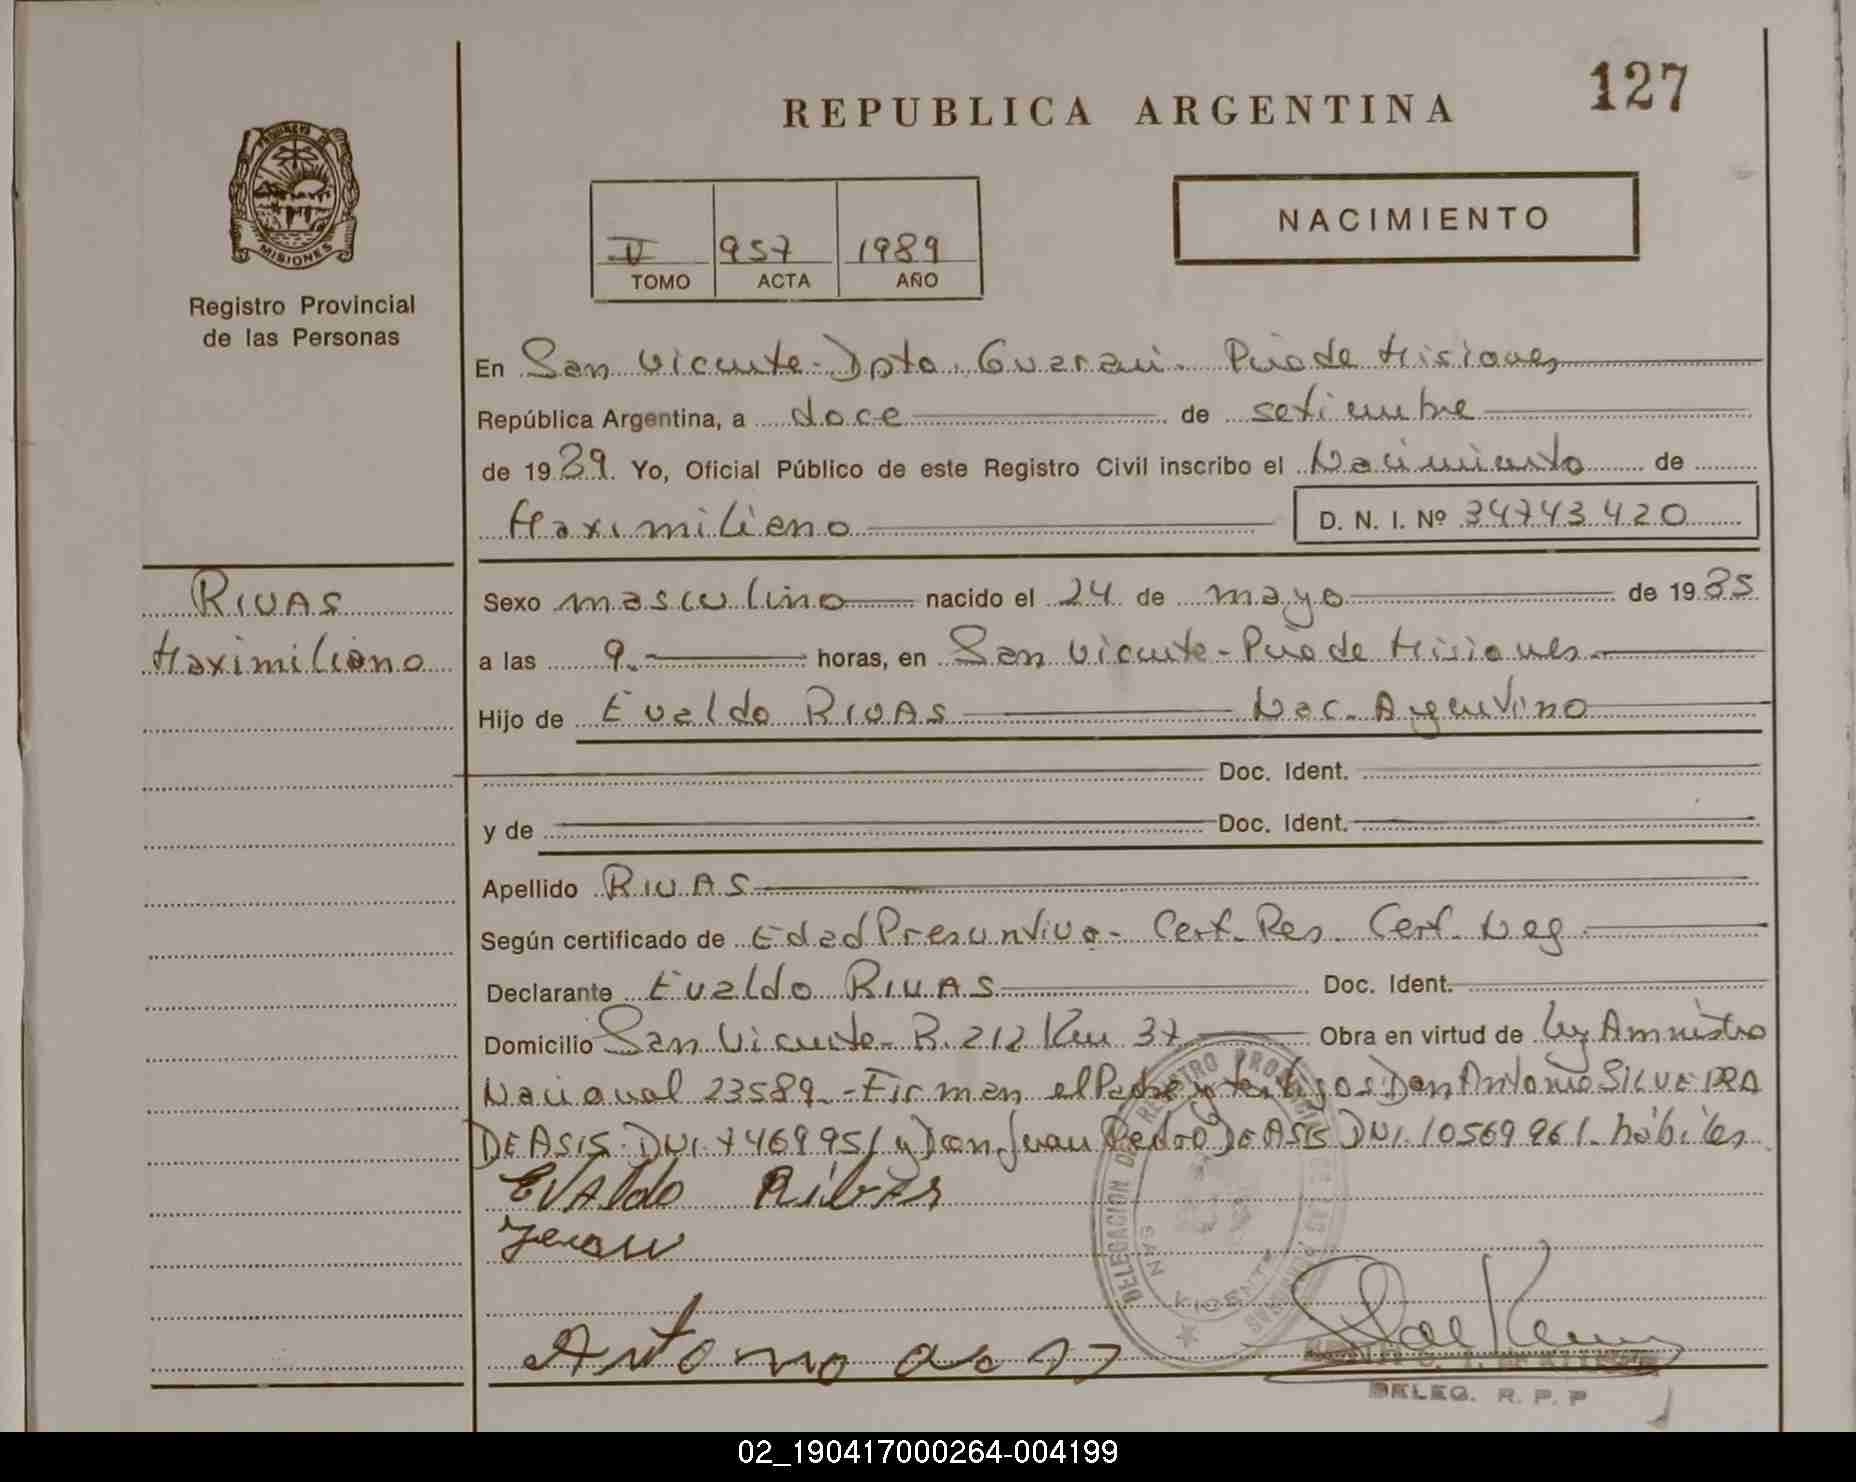 127
REPUBLICA ARGENTINA
NACIMIENTO
MISIONES
II 957 1989
TOMO ACTA AÑO
Registro Provincial
de las Personas
En San Vicente - Dpto. Guarani - Pcia de Misiones
República Argentina, a doce de setiembre
de 1989. Yo, Oficial Público de este Registro Civil inscribo el Nacimiento de
Maximiliano D. N. I. Nº 34743420
RIVAS
Maximiliano
Sexo masculino nacido el 24 de mayo de 1985
a las 9. horas, en San Vicente - Pcia de Misiones
Hijo de Evaldo RIVAS Nac. Argentino
Doc. Ident.
y de Doc. Ident.
Apellido RIVAS
Según certificado de Edad Presuntiva - Cert. Res. Cert. Neg
Declarante Evaldo RIVAS Doc. Ident.
Domicilio San Vicente - R. 212 Km 37 Obra en virtud de Ley Amnistia
Nacional 23589. - Firman el Padre y testigos Don Antonio SILVEIRA
DE ASIS. DNI. 7469951 y Don Juan Pedro DE ASIS DNI. 10569961. hábiles
EVAldo RiVAS
Antonio
DELEGACION DEL REGISTRO PROVINCIAL DE LAS PERSONAS
SAN VICENTE
DELEG. R. P. P
02_190417000264-004199